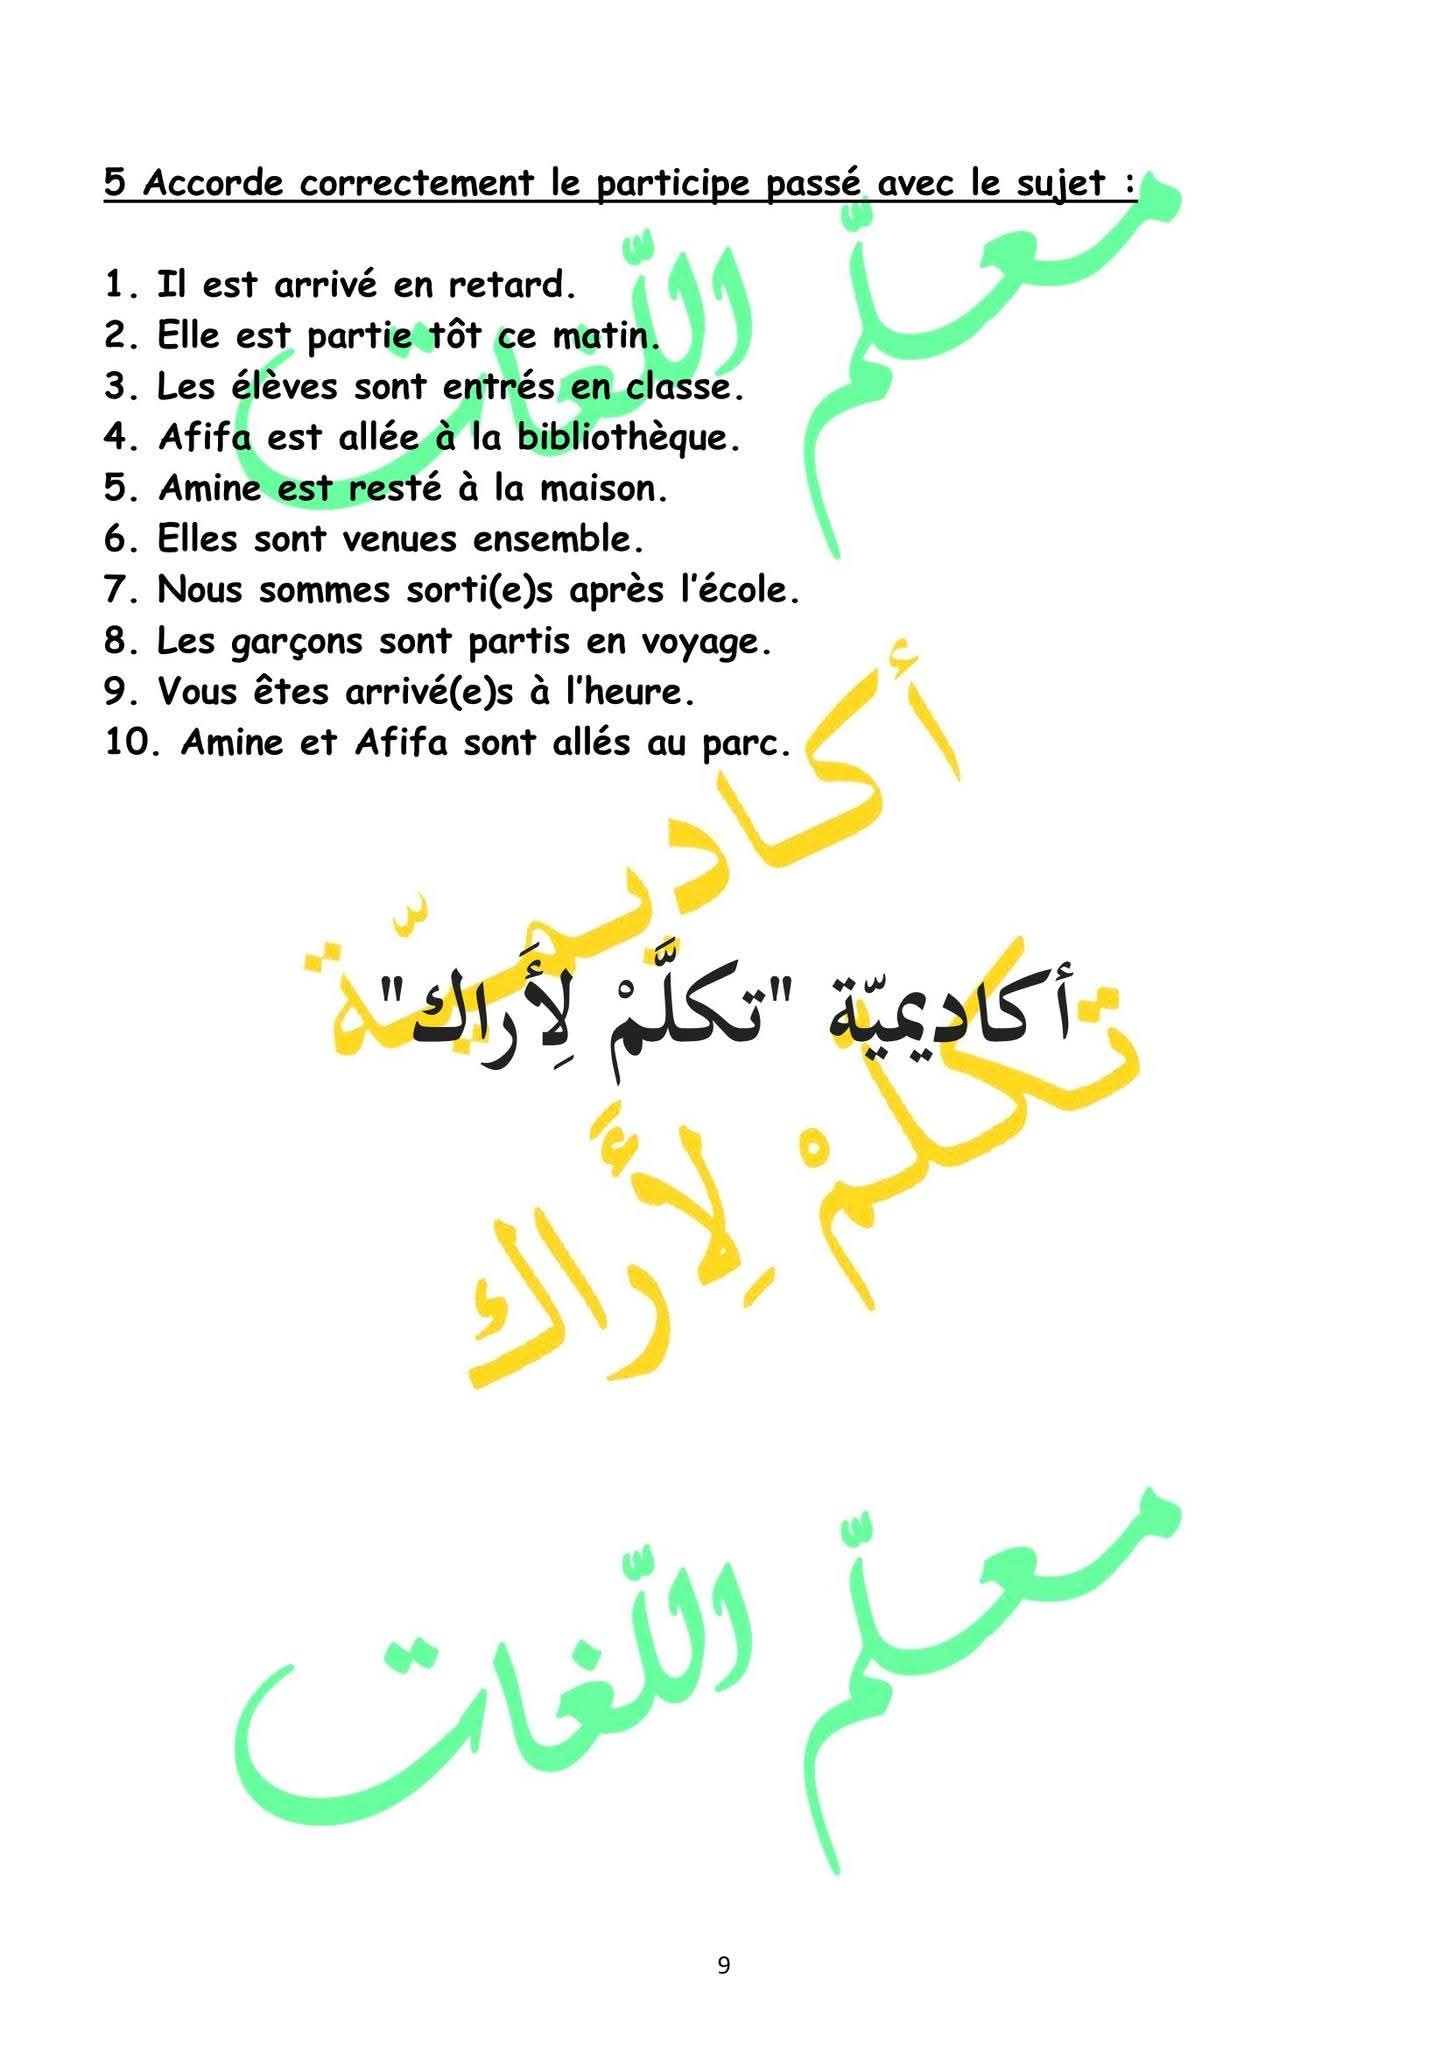 5 Accorde correctement le participe passé avec le sujet :
1. Il est arrivé en retard.
2. Elle est partie tôt ce matin.
3. Les élèves sont entrés en classe.
4. Afifa est allée à la bibliothèque.
5. Amine est resté à la maison.
6. Elles sont venues ensemble.
7. Nous sommes sorti(e)s après l’école.
8. Les garçons sont partis en voyage.
9. Vous êtes arrivé(e)s à l’heure.
10. Amine et Afifa sont allés au parc.
معلّم اللّغات
أكاديميّة
أكاديميّة "تكلَّمْ لِأَراك"
تكلمْ لِأَراك
معلّم اللّغات
9